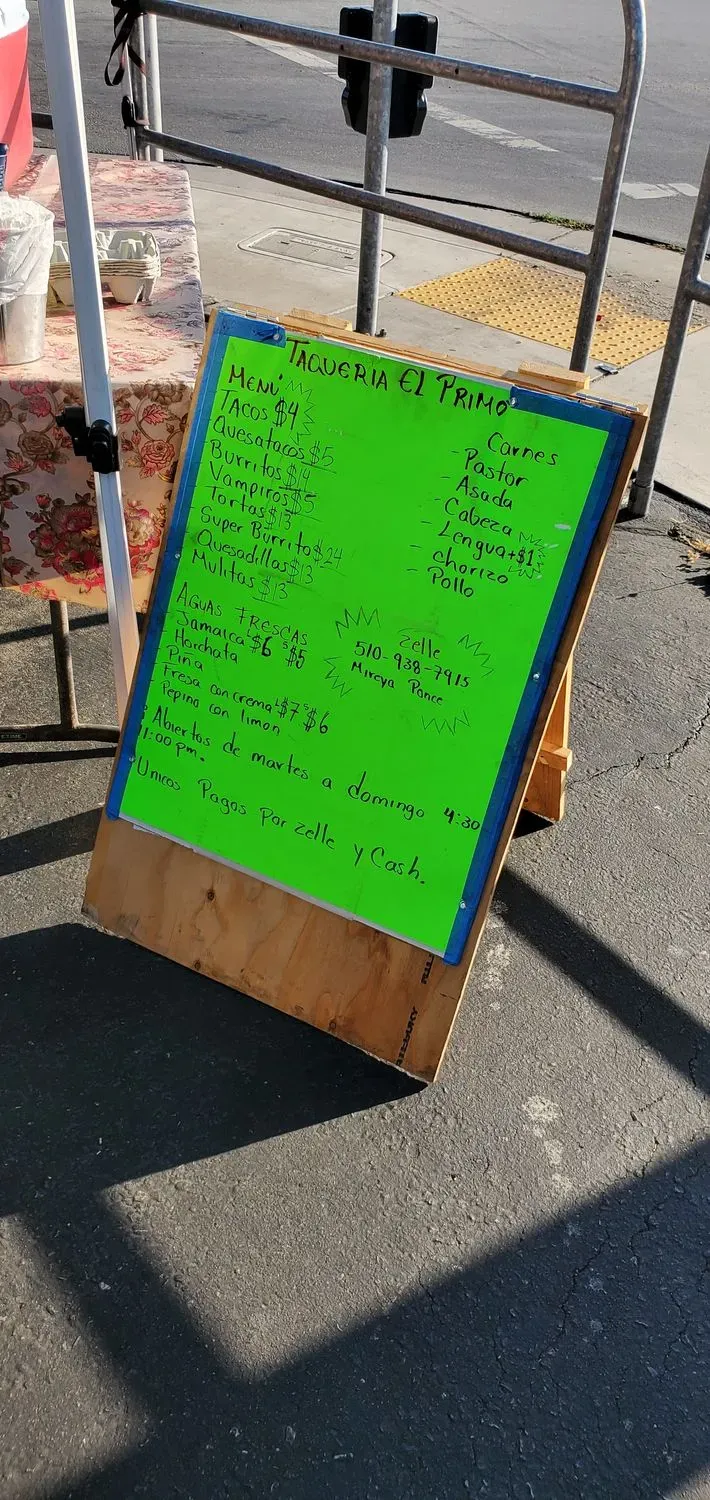 TAQUERIA EL PRIMO
MENÚ
TACOS $4
Quesatacos $5
Burritos $14
Vampiros $5
Tortas $13
Super Burrito $24
Quesadillas $13
Mulitas $13
Carnes
- Pastor
- Asada
- Cabeza
- Lengua +$1
- chorizo
- Pollo
AGUAS FRESCAS
Jamaica L$6 S$5
Horchata
Piña
Fresa con crema L$7 S$6
Pepino con limon
Zelle
510-938-7915
Mireya Ponce
Abiertos de martes a domingo 4:30
11:00 pm.
Unicos Pagos Por Zelle y Cash.